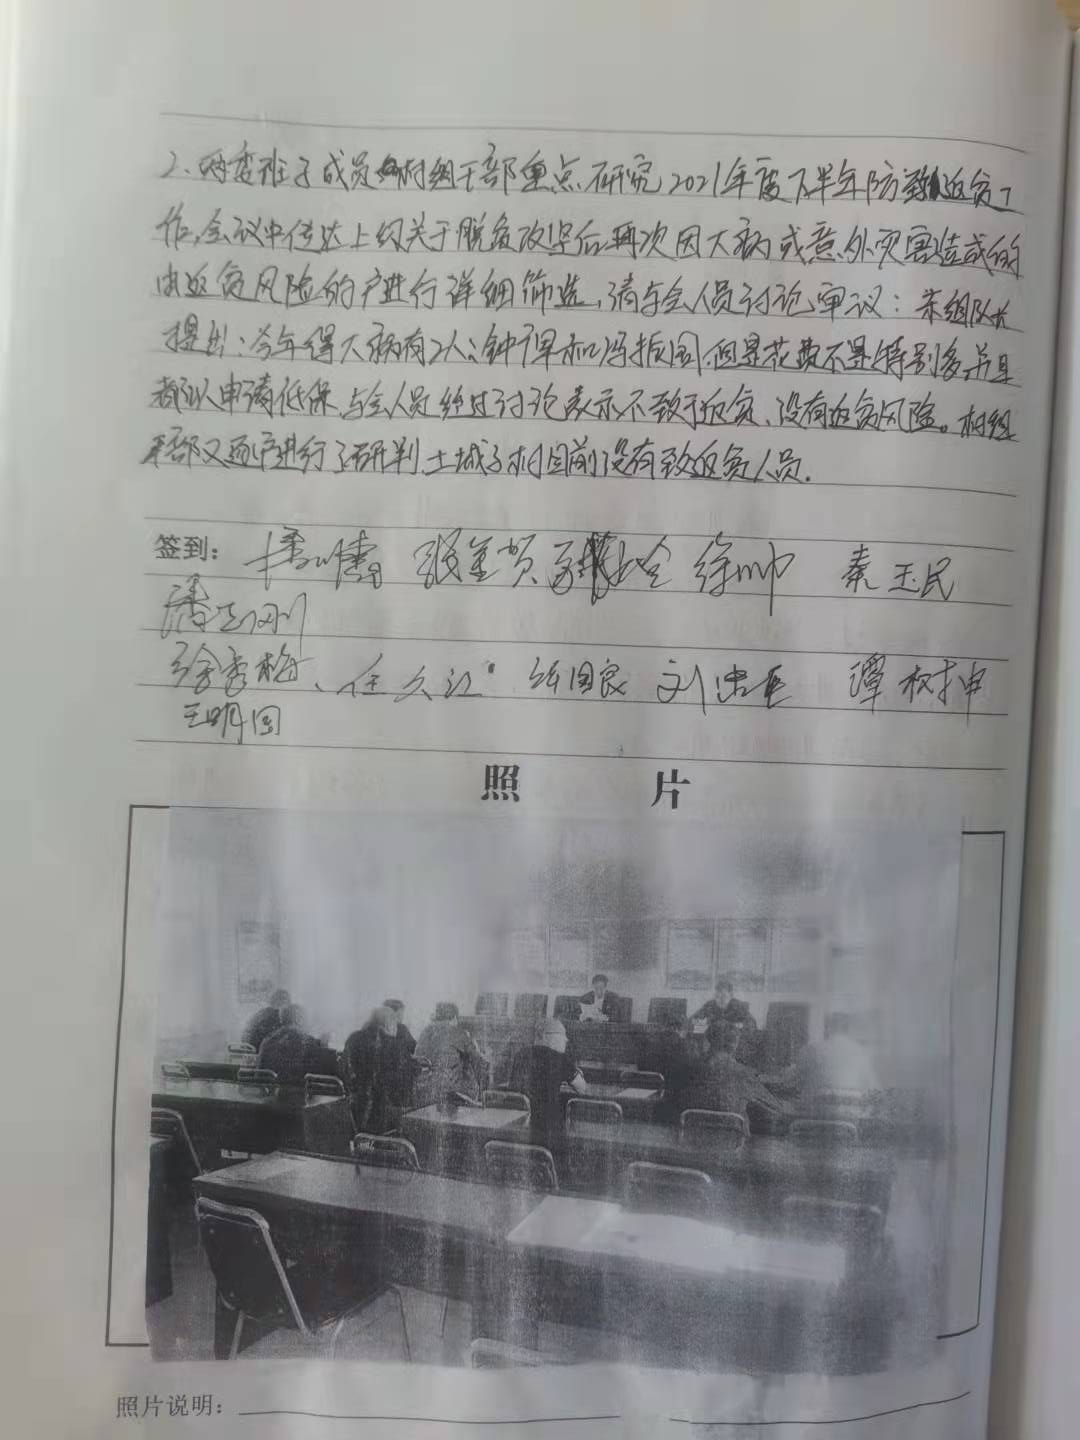 2、两委班子成员 村组干部重点研究2021年度下半年防致返贫工
作,会议中传达上级关于脱贫攻坚后再次因大病或意外灾害造成的
由返贫风险的户进行详细筛选,请与会人员讨论审议: 组队长
提出:今年得大病有2人:钟 和冯振国,但是花费不是特别多并且
都以申请低保,与会人员经过讨论表示不致于返贫、没有返贫风险。村组
干部又逐户进行了研判,土城子村目前没有致返贫人员.
签到: 张金贺 徐帅 秦玉民
潘志刚
徐秀梅、任久江 张国良 刘忠臣 谭树申
王明国
照 片
照片说明: